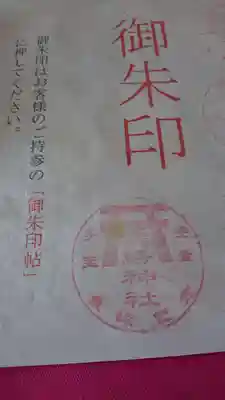 御朱印
御朱印はお客様のご持参の「御朱印帖」
に押してください。
神社